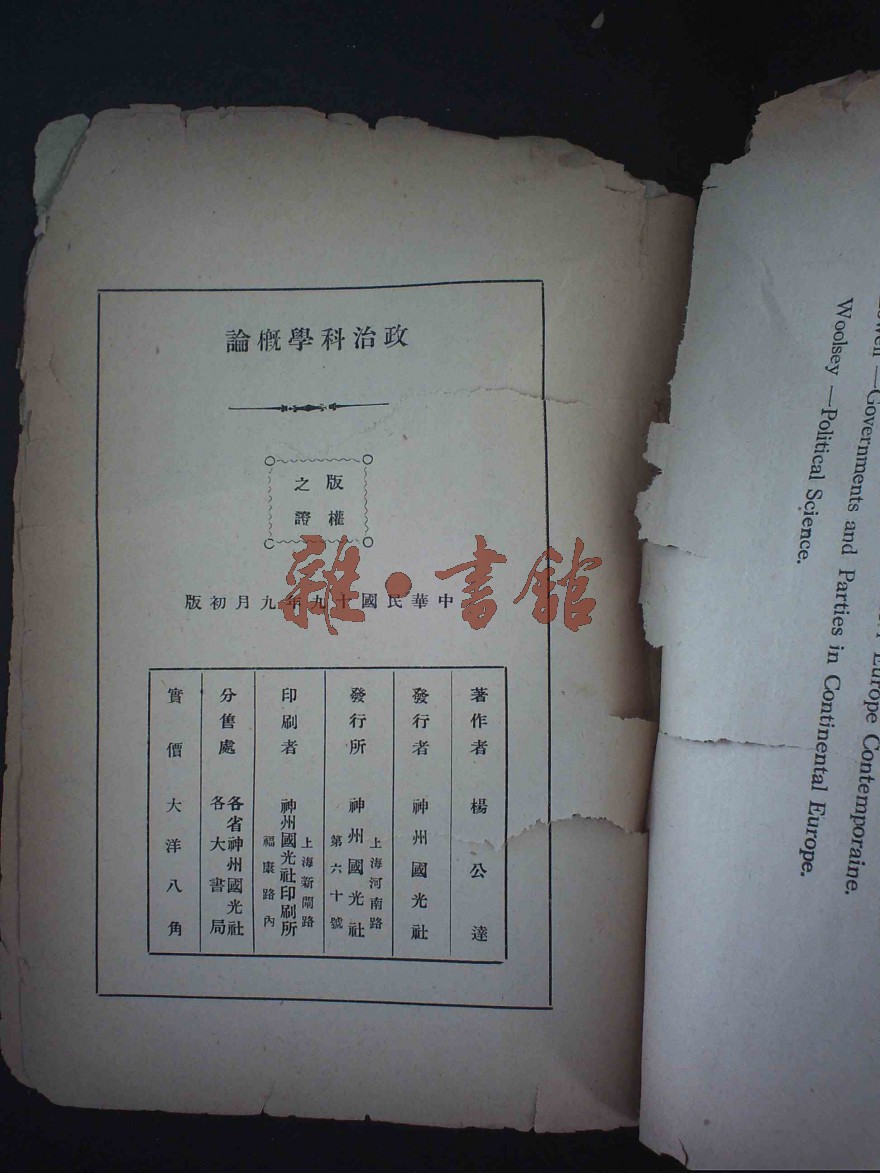 政治科學概論
版權
之證
中華民國十九年九月初版
雜·書館
著作者 楊公達
發行者 神州國光社
發行所 神州國光社
上海河南路
第六十號
印刷者 神州國光社印刷所
上海新閘路
福康路內
分售處 各省神州國光社
各大書局
實價 大洋八角
—Governments and Parties in Continental Europe.
Woolsey —Political Science.
Europe Contemporaine.